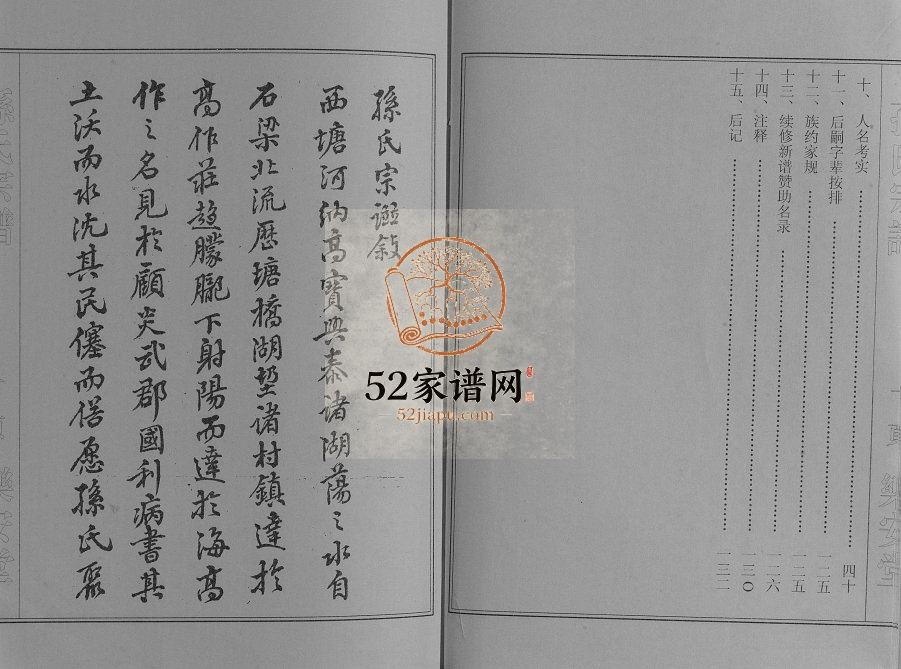 十、人名考实 四十
十一、后嗣字辈按排 一二五
十二、族约家规 一二五
十三、续修新谱赞助名录 一二六
十四、注释 一三〇
十五、后记 一三二
孫氏宗譜敍
西塘河納高寶興泰諸湖蕩之水自
石梁北流歷塘橋湖垄诸村鎮達於
高作莊趨朦朧下射陽而達於海高
作之名見於顧炎武郡國利病書其
土沃而水沈其民僿而偣愿孫氏聚
52家谱网
52jiapu.com